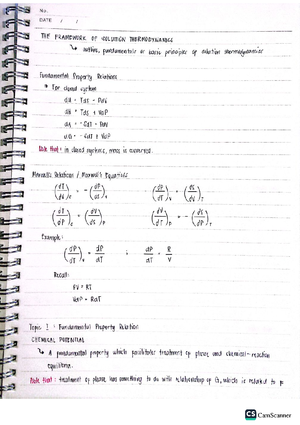 No.
DATE / /
THE FRAMEWORK OF SOLUTION THERMODYNAMICS
↳ outline, fundamentals or basic principles of solution thermodynamics
Fundamental Property Relations
• For closed system
dU = TdS - PdV
dH = TdS + VdP
dA = - SdT - PdV
dG = - SdT + VdP
Note that: in closed systems, mass is conserved.
Maxwell's Relations / Maxwell's Equations
(dT/dV)s = - (dP/dS)v (dP/dT)v = (dS/dV)T
(dT/dP)s = (dV/dS)P (dV/dT)P = - (dS/dP)T
Example:
(dP/dT)v = dP/dT ; dP/dT = R/V
Recall:
PV = RT
VdP = RdT
Topic 1: Fundamental Property Relation
CHEMICAL POTENTIAL
↳ A fundamental property which facilitates treatment of phase and chemical-reaction
equilibria.
Note that: treatment of phase has something to do with relationship of G, which is related to μ
CS CamScanner